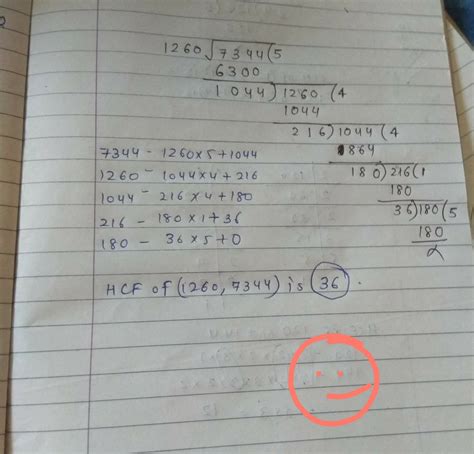 1260√7344(5
6300
1044)1260(4
1044
216)1044(4
864
180)216(1
180
36)180(5
180
7344 - 1260×5+1044
1260 - 1044×4+216
1044 - 216×4+180
216 - 180×1+36
180 - 36×5+0
HCF of (1260, 7344) is 36.